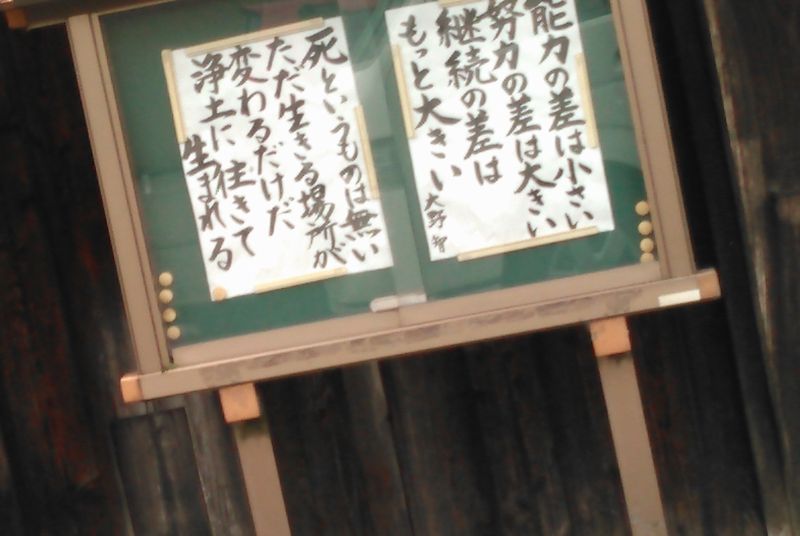 能力の差は小さい
努力の差は大きい
継続の差は
もっと大きい 大野智
死というものは無い
ただ生きる場所が
変わるだけだ
浄土に往きて
生まれる